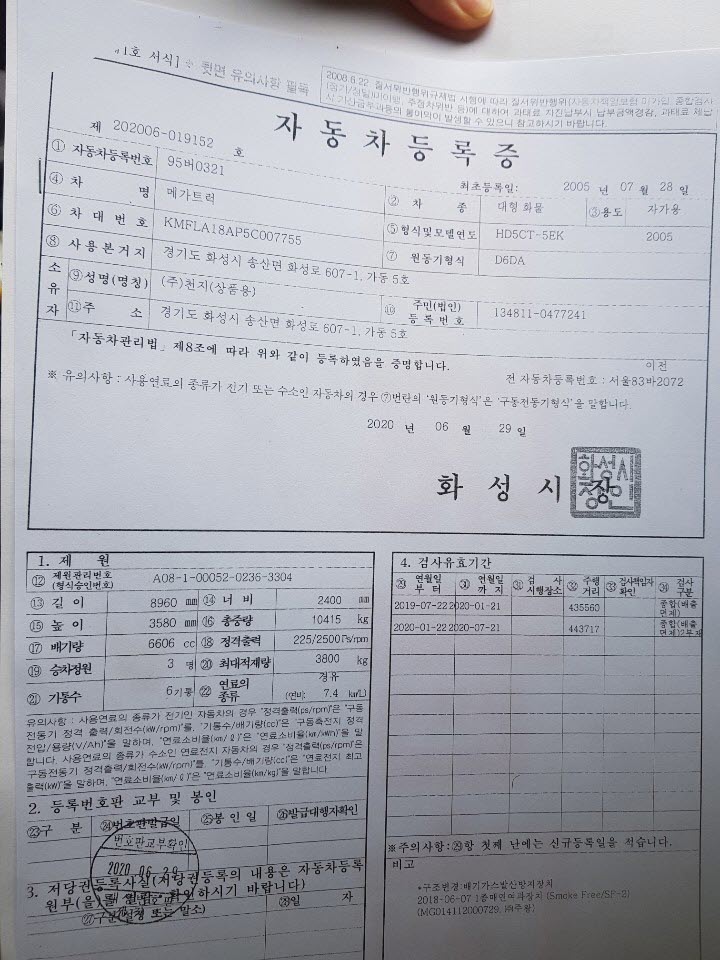 1호 서식] ※ 뒷면 유의사항 필독
2008.6.22 질서위반행위규제법 시행에 따라 질서위반행위(자동차책임보험 미가입, 종합검사
제 202006-019152 호
자동차등록증
최초등록일: 2005 년 07 월 28 일
① 자동차등록번호 95버0321 ② 차 종 대형 화물 ③용도 자가용
④ 차 명 메가트럭 ⑤형식및모델연도 HD5CT-5EK 2005
⑥ 차 대 번 호 KMFLA18AP5C007755 ⑦ 원동기형식 D6DA
⑧ 사 용 본 거 지 경기도 화성시 송산면 화성로 607-1, 가동 5호
소유자 ⑨성명(명칭) (주)천지(상품용) ⑩ 주민(법인)등록번호 134811-0477241
⑪주 소 경기도 화성시 송산면 화성로 607-1, 가동 5호
「자동차관리법」 제8조에 따라 위와 같이 등록하였음을 증명합니다.
이전
전 자동차등록번호 : 서울83바2072
※ 유의사항 : 사용연료의 종류가 전기 또는 수소인 자동차의 경우 ⑦번란의 '원동기형식'은 '구동전동기형식'을 말합니다.
2020 년 06 월 29 일
화 성 시 장
화성시장인
1. 제 원
⑫ 제원관리번호 (형식승인번호) A08-1-00052-0236-3304
⑬ 길 이 8960 mm ⑭ 너 비 2400 mm
⑮ 높 이 3580 mm ⑯ 총중량 10415 kg
⑰ 배기량 6606 cc ⑱ 정격출력 225/2500 Ps/rpm
⑲ 승차정원 3 명 ⑳ 최대적재량 3800 kg
㉑ 기통수 6기통 ㉒ 연료의 종류 경유 (연비: 7.4 km/L)
유의사항 : 사용연료의 종류가 전기인 자동차의 경우 "정격출력(ps/rpm)"은 "구동
전동기 정격 출력/회전수(kW/rpm)"를, "기통수/배기량(cc)"은 "구동축전지 정격
전압/용량(V/Ah)"을 말하며, "연료소비율(km/ℓ)"은 "연료소비율(km/kWh)"을 말
합니다. 사용연료의 종류가 수소인 연료전지 자동차의 경우 "정격출력(ps/rpm)은
구동전동기 정격출력/회전수(kW/rpm)"를, "기통수/배기량(cc)"은 "연료전지 최고
출력(kW)"을 말하며, "연료소비율(km/ℓ)"은 "연료소비율(km/kg)"을 말합니다
2. 등록번호판 교부 및 봉인
㉓구 분 ㉔번호판발급일 ㉕봉 인 일 ㉖발급대행자확인
번호판교부확인
2020.06.29
3. 저당권등록사실(저당권등록의 내용은 자동차등록
원부(을)를 열람·확인하시기 바랍니다)
㉗구분(설정 또는 말소) ㉘일 자
4. 검사유효기간
㉙ 연월일 부 터 ㉚ 연월일 까 지 ㉛ 검 사 시행장소 ㉜ 주행 거리 ㉝ 검사책임자 확인 ㉞ 검사 구분
2019-07-22 2020-01-21 435560 종합(배출면제)
2020-01-22 2020-07-21 443717
※주의사항:㉙항 첫째 난에는 신규등록일을 적습니다.
비고
*구조변경:배기가스발산방지장치
2018-06-07 1종매연여과장치 (Smoke Free/SF-2)